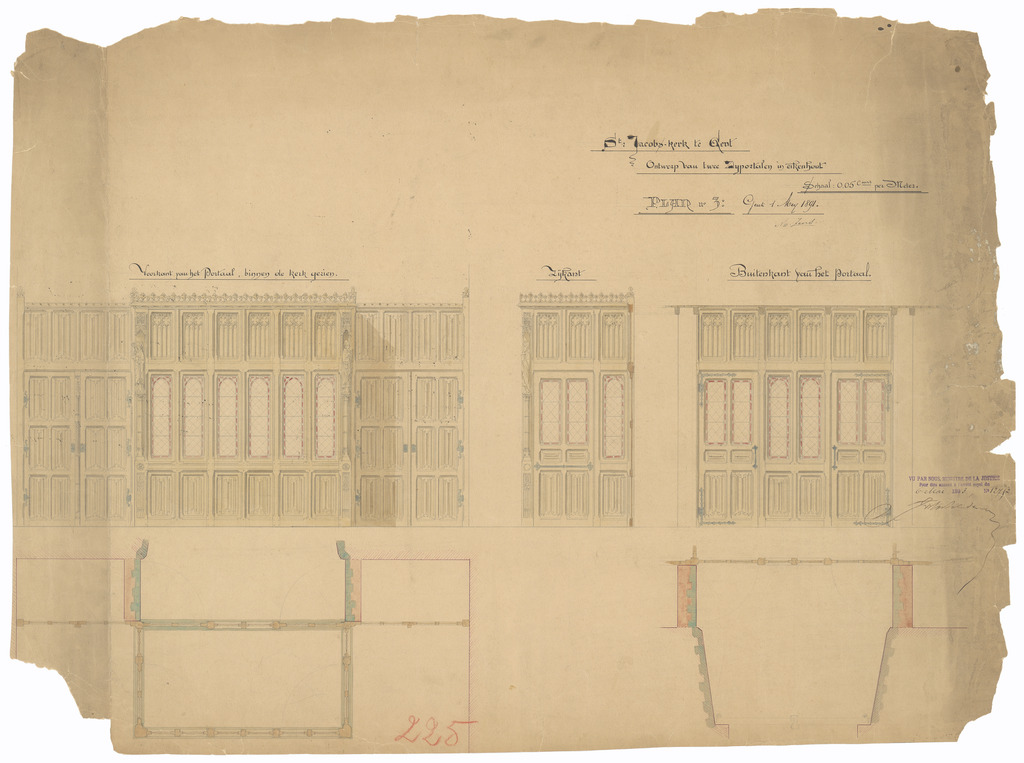 St: Jacobs-kerk te Gent
Ontwerp van twee Zyportalen in eikenhout
Schaal: 0.05 c per Meter.
PLAN N° 3:
Gent 1 Mey 1891.
Voorkant van het Portaal, binnen de kerk gezien.
Zijkant
Buitenkant van het Portaal.
VU PAR NOUS, MINISTRE DE LA JUSTICE
Pour être annexé à l'arrêté royal du
225